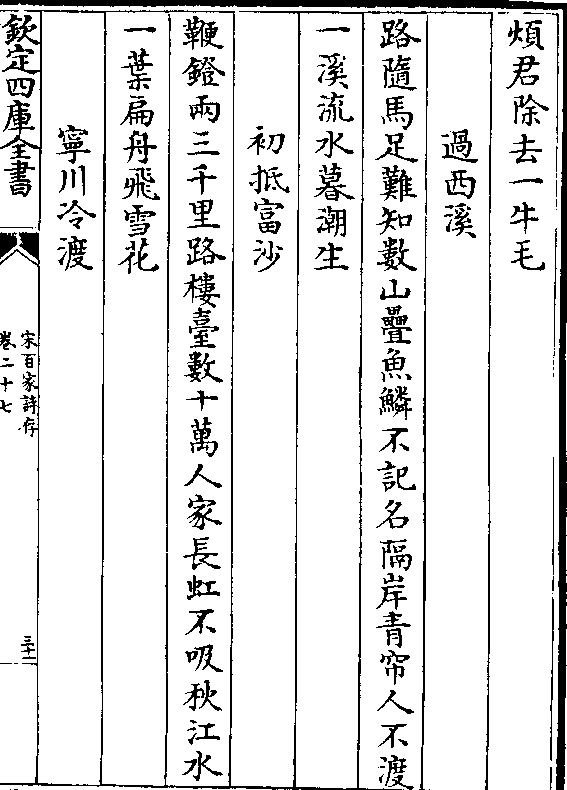 煩君除去一牛毛
過西溪
路隨馬足難知數山疊魚鱗不記名隔岸青帘人不渡
一溪流水暮潮生
初抵富沙
鞭鐙兩三千里路樓臺數十萬人家長虹不吸秋江水
一葉扁舟飛雪花
寧川冷渡
欽定四庫全書
宋百家詩存
卷二十七
三十二